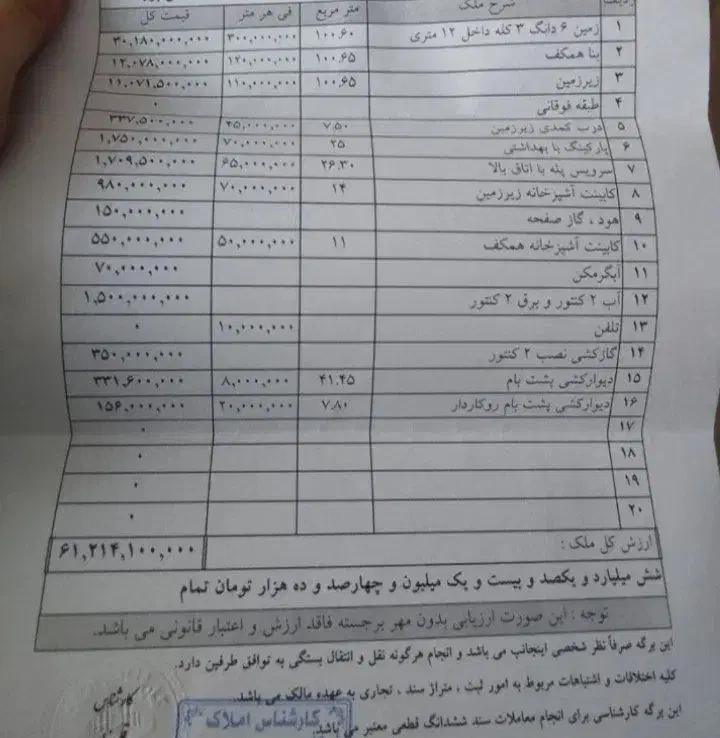 ردیف شرح ملک متر مربع فی هر متر قیمت کل
۱ زمین ۶ دانگ ۳ کله داخل ۱۲ متری ۱۰۰.۶۰ ۳۰۰,۰۰۰,۰۰۰ ۳۰,۱۸۰,۰۰۰,۰۰۰
۲ بنا همکف ۱۰۰.۶۵ ۱۲۰,۰۰۰,۰۰۰ ۱۲,۰۷۸,۰۰۰,۰۰۰
۳ زیرزمین ۱۰۰.۶۵ ۱۱۰,۰۰۰,۰۰۰ ۱۱,۰۷۱,۵۰۰,۰۰۰
۴ طبقه فوقانی ۰
۵ درب کمدی زیرزمین ۷.۵۰ ۴۵,۰۰۰,۰۰۰ ۳۳۷,۵۰۰,۰۰۰
۶ پارکینگ با بهداشتی ۲۵ ۷۰,۰۰۰,۰۰۰ ۱,۷۵۰,۰۰۰,۰۰۰
۷ سرویس پله با اتاق بالا ۲۶.۳۰ ۶۵,۰۰۰,۰۰۰ ۱,۷۰۹,۵۰۰,۰۰۰
۸ کابینت آشپزخانه زیرزمین ۱۴ ۷۰,۰۰۰,۰۰۰ ۹۸۰,۰۰۰,۰۰۰
۹ هود ، گاز صفحه ۱۵۰,۰۰۰,۰۰۰
۱۰ کابینت آشپزخانه همکف ۱۱ ۵۰,۰۰۰,۰۰۰ ۵۵۰,۰۰۰,۰۰۰
۱۱ آبگرمکن ۷۰,۰۰۰,۰۰۰
۱۲ آب ۲ کنتور و برق ۲ کنتور ۱,۵۰۰,۰۰۰,۰۰۰
۱۳ تلفن ۱۰,۰۰۰,۰۰۰ ۰
۱۴ گازکشی نصب ۲ کنتور ۳۵۰,۰۰۰,۰۰۰
۱۵ دیوارکشی پشت بام ۴۱.۴۵ ۸,۰۰۰,۰۰۰ ۳۳۱,۶۰۰,۰۰۰
۱۶ دیوارکشی پشت بام روکاردار ۷.۸۰ ۲۰,۰۰۰,۰۰۰ ۱۵۶,۰۰۰,۰۰۰
۱۷ ۰
۱۸ ۰
۱۹ ۰
۲۰ ۰
ارزش کل ملک : ۶۱,۲۱۴,۱۰۰,۰۰۰
شش میلیارد و یکصد و بیست و یک میلیون و چهارصد و ده هزار تومان تمام
توجه : این صورت ارزیابی بدون مهر برجسته فاقد ارزش و اعتبار قانونی می باشد.
این برگه صرفاً نظر شخصی اینجانب می باشد و انجام هرگونه نقل و انتقال بستگی به توافق طرفین دارد.
کلیه اختلافات و اشتباهات مربوط به امور ثبت ، متراژ سند ، تجاری به عهده مالک می باشد.
این برگه کارشناسی برای انجام معاملات سند ششدانگ قطعی معتبر می باشد.
کارشناس
کارشناس املاک